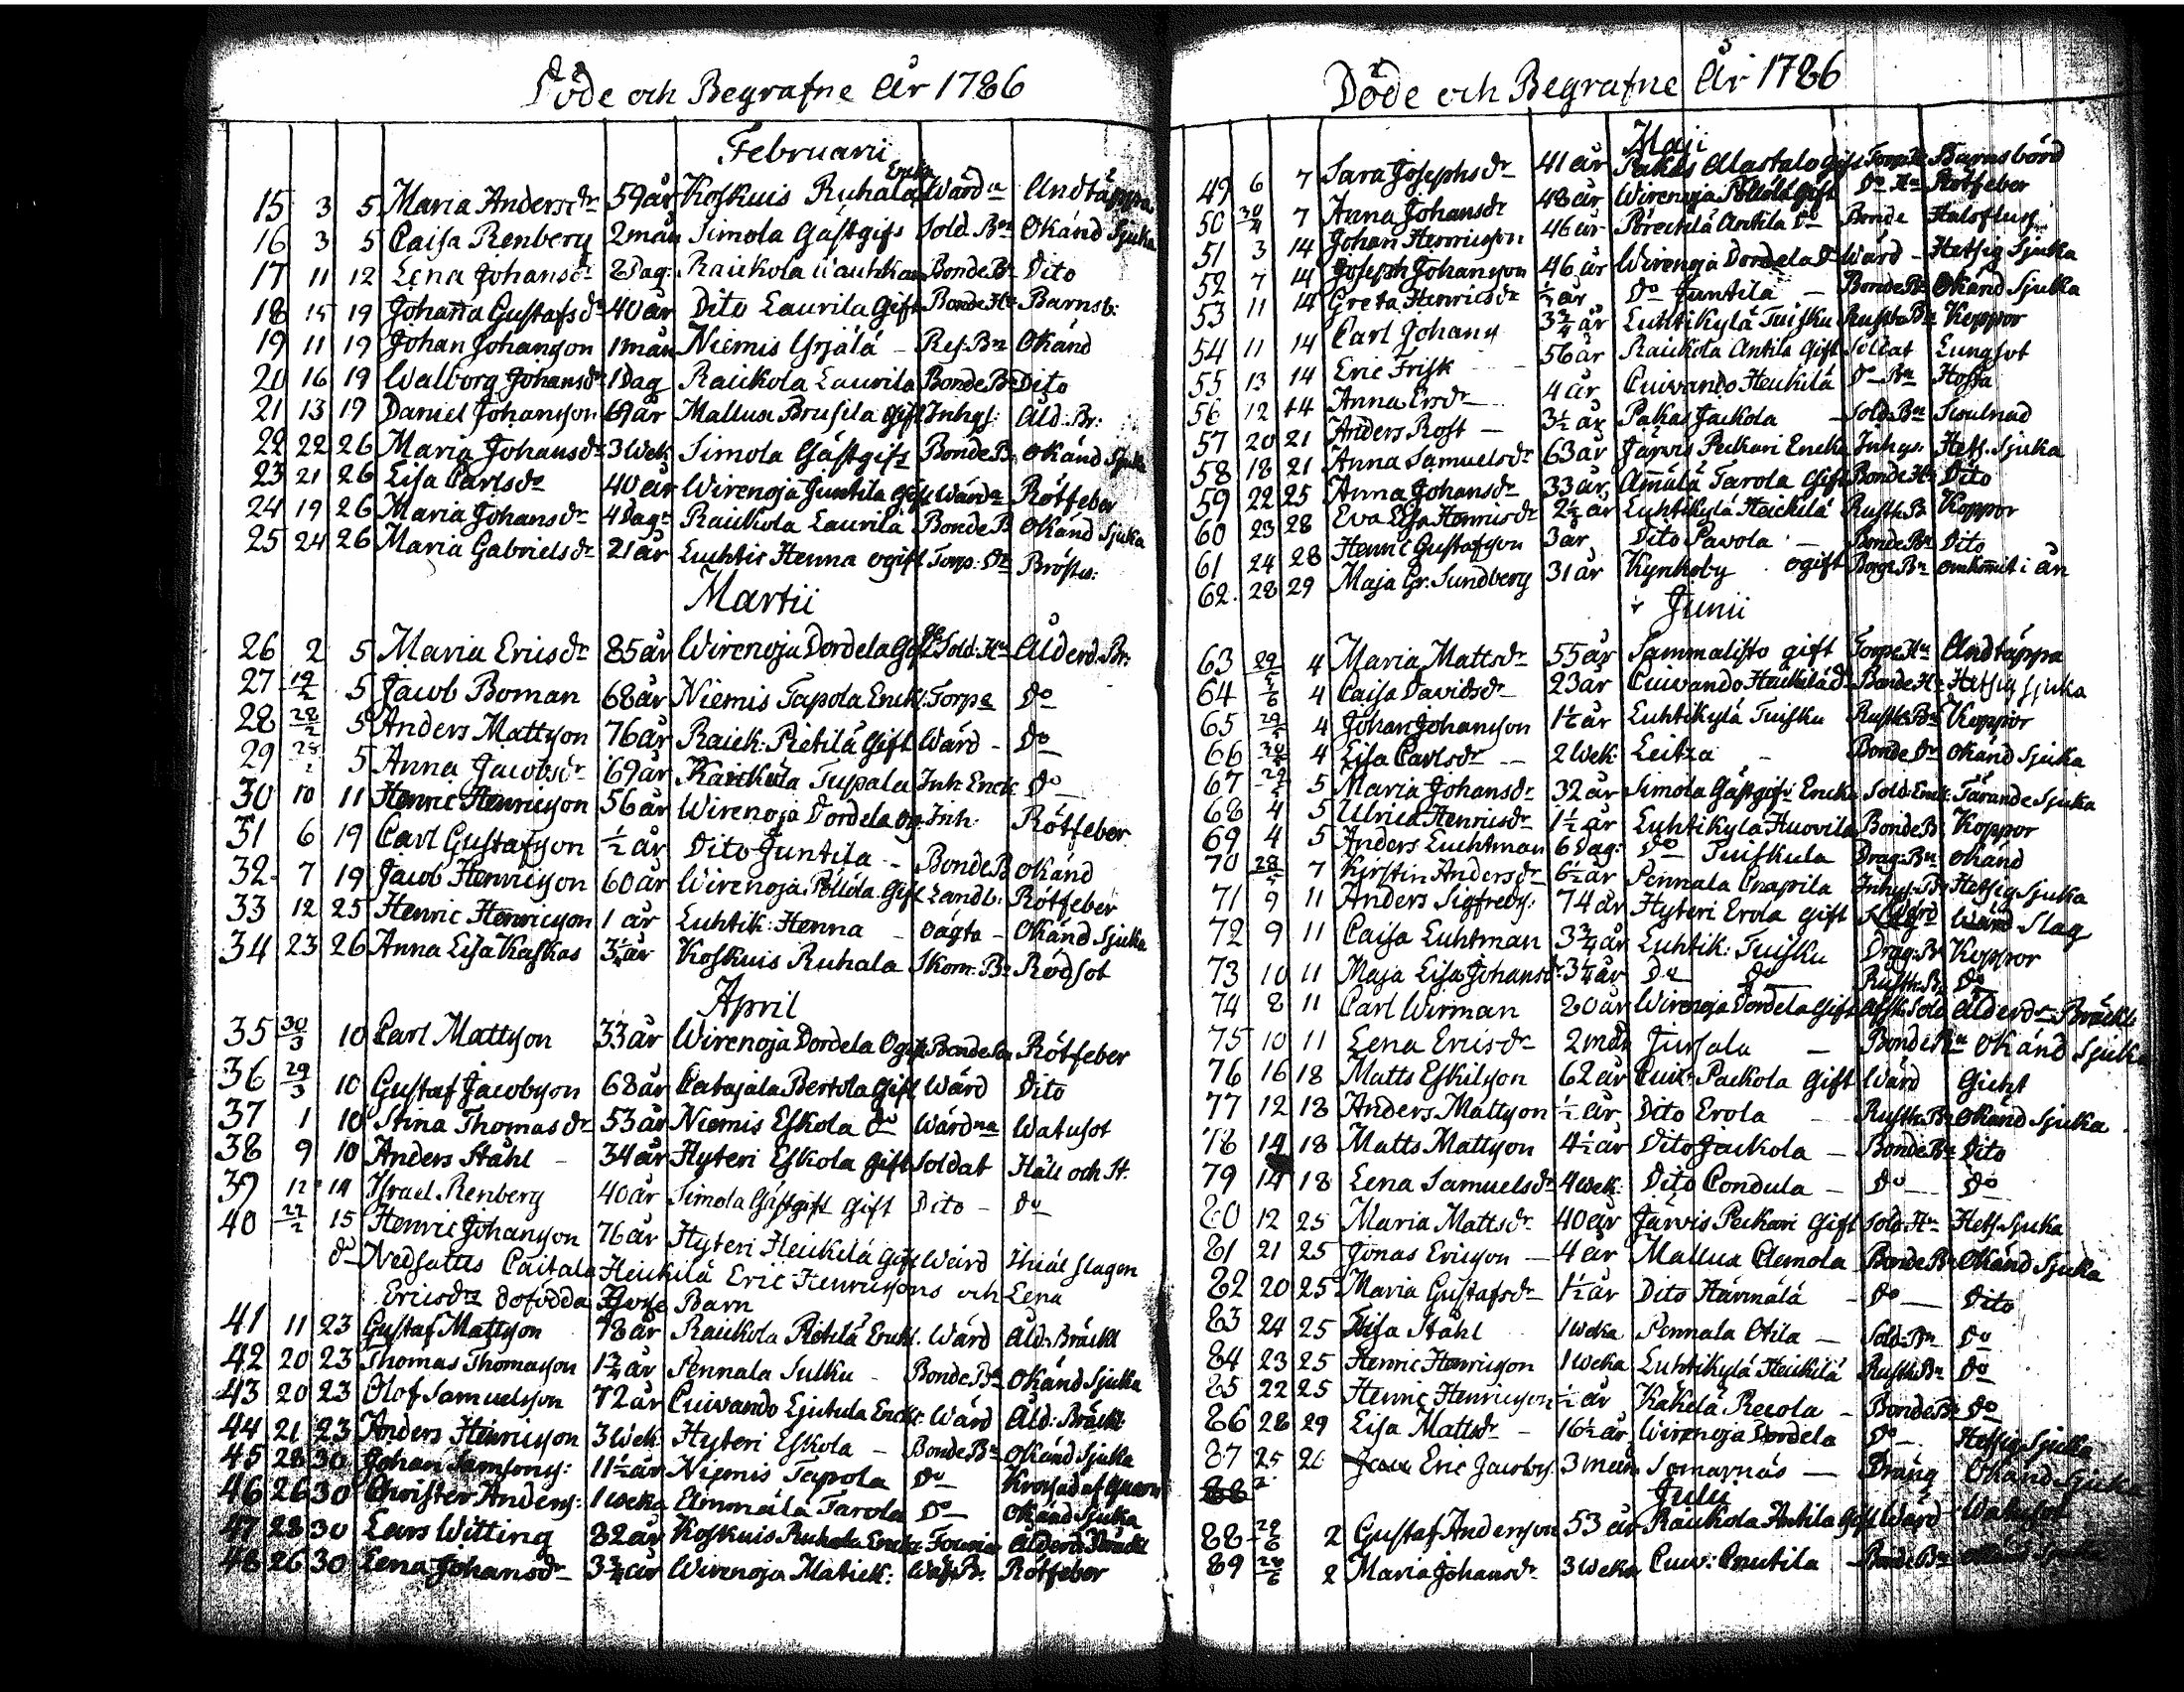 Döde och Begrafne År 1786
Februarii
15 3 5 Maria Andersdr 59 år Koskuis Ruhala Encka Wärdna Andtäppa
16 3 5 Caisa Renberg 2 mån Simola Gästgifs Sold. Bn Okänd Sjuka
17 11 12 Lena Johansdr 2 Dag: Raickola Bonde Bn Dito
18 15 19 Johanna Gustafsdr 40 år Dito Laurila Gift Bonde Hu Barnsb:
19 11 19 Johan Johansson 1 mån Niemis Yrjälä - Res. Bn Okänd
20 16 19 Walborg Johansdr 1 Dag Raickola Laurila Bonde Bn Dito
21 13 19 Daniel Johansson 69 år Mallusa Brusila gift Inhys: Åld. Br:
22 22 26 Maria Johansdr 3 Wek Simola Gästgifs Bonde B. Okänd Sjuka
23 21 26 Lisa Carlsdr 40 år Wirenoja Juntila Gift Wärdn Rötfeber
24 19 26 Maria Johansdr 4 Dagr Raickola Laurila Bonde B Okänd Sjuka
25 24 26 Maria Gabrielsdr 21 år Luhtic Henna ogift Torp. Dr Bröstv:
Martii
26 2 5 Maria Ericsdr 85 år Wirenoja Dordela Gift Sold. Hu Ålderd. Br:
27 19/2 5 Jacob Boman 68 år Niemis Tapola Enckl. Torpa Do
28 28/2 5 Anders Mattson 76 år Raick: Pietilä Gift Wärd - Do
29 28/2 5 Anna Jacobsdr 69 år Raickola Tupala Inh. Enck Do
30 10 11 Henric Henricsson 56 år Wirenoja Dordela Og. Inh. Rötfeber
31 6 19 Carl Gustafsson ½ år Dito Juntila - Bonde B Okänd
32 7 19 Jacob Henricsson 60 år Wirenoja Pöllölä Gift Landb: Rötfeber
33 12 25 Henric Henricsson 1 år Luhtik: Henna - oägta - Okänd Sjuka
34 23 26 Anna Lisa Kaskas 3¼ år Koskuis Ruhala Skom. Bn Rödsot
April
35 30/3 10 Carl Mattson 33 år Wirenoja Dordela Ogift Bonde Son Rötfeber
36 29/3 10 Gustaf Jacobsson 68 år Catajala Bertola Gift Wärd Dito
37 1 10 Stina Thomasdr 53 år Niemis Eskola Do Wärdna Watusot
38 9 10 Anders Ståhl - 34 år Hyteri Eskola gift Soldat Håll och St.
39 12 14 Israel Renberg 40 år Simola Gästgift Gift Dito - Do
40 27/2 15 Henric Johansson 76 år Hyteri Heickilä Gift Wärd Ihiälslagen
do Nedsattes Caitala Heickilä Eric Henricssons och Lena
Ericsdrs dödfödda Barn
41 11 23 Gustaf Mattson 78 år Raickola Pietilä Enckl. Wärd Åld: Bräckl
42 20 23 Thomas Thomasson 1¾ år Pennala Sulku - Bonde Bn Okänd Sjuka
43 20 23 Olof Samuelsson 72 år Cuivando Ljutula Enckl. Wärd Åld: Bräckl
44 21 23 Anders Henricsson 3 Wek. Hyteri Eskola - Bonde Bn Okänd Sjuka
45 28 30 Johan Samsons: 11½ år Niemis Tapola Do Krossad af Quarn
46 26 30 Christer Anders: 1 weka Ammälä Tarola Do - Okänd Sjuka
47 23 30 Lars Witting 82 år Koskuis Ruhala Enckl. Ålderd. Bräckl
48 26 30 Lena Johansdr 3¾ år Wirenoja Matick: Rötfeber
Döde och Begrafne År 1786
Maji
49 6 7 Sara Josephsdr 41 år Pakas Alastalo gift Torp. Hu Barnsbörd
50 30/4 7 Anna Johansdr 48 år Wirenoja Pöllölä Gift Do Hu Rötfeber
51 3 14 Johan Henricsson 46 år Perechilä Antila Do Bonde Halsfluss
52 7 14 Joseph Johansson 46 år Wirenoja Dordela Do Wärd - Hetsig Sjuka
53 11 14 Greta Henricsdr ½ år Do Juntila - Bonde Bn Okänd Sjuka
54 11 14 Carl Johans 3¾ år Luhtikylä Tuisku Rusth. Bn Koppor
55 13 14 Eric Frisk 56 år Raickola Antila Gift Soldat Lungsot
56 12 14 Anna Ersdr 4 år Cuivando Heickilä Do Bn Hosta
57 20 21 Anders Rost - 3½ år Pakas Jackola - Sold. Bn Swulnad
58 18 21 Anna Samuelsdr 63 år Järvis Peckari Encka Inhys. Hets. Sjuka
59 22 25 Anna Johansdr 33 år Amälä Tarola Gift Bonde Hu Dito
60 23 28 Eva Lisa Henricsdr 2½ år Luhtikylä Heickilä Rusth. B Koppor
61 24 28 Henric Gustafsson 3 år Dito Pavola - Bonde Bn Dito
62 28 29 Maja Gr. Sundberg 31 år Kyrckoby ogift omkommit i ån
Junii
63 29/5 4 Maria Mattsdr 55 år Sammalisto gift Torpe Hu Andtäppa
64 4 Caisa Davidsdr 23 år Cuivando Heickilä do Bonde Hu Hetsig Sjuka
65 29/5 4 Johan Johansson 1½ år Luhtikylä Tuisku Rusth. Bn Koppor
66 30/5 4 Lisa Carlsdr - 2 Wek: Leitza - Bonde Dr Okänd Sjuka
67 29/5 5 Maria Johansdr 32 år Simola Gästgifs Encka Sold. Enck. Tärande Sjuka
68 4 5 Ulrica Henricsdr 1½ år Luhtikylä Huovila Bonde B Koppor
69 4 5 Anders Luchtman 6 Dag: Do Tuiskula Drag: Bn Okänd
70 28/5 7 Kirstin Andersdr 6½ år Pennala Knapila Inhys. B Hetsig Sjuka
71 9 11 Anders Sigfreds: 74 år Hyteri Erola gift Wärd Slag
72 9 11 Caisa Luhtman 3¾ år Luhtik: Tuisku Drag: Bn Koppor
73 10 11 Maja Lisa Johansdr 3¼ år Do Do Rusth. Bn Do
74 8 11 Carl Wirman 80 år Wirenoja Dordela Gift Afsk. Sold Ålderd. Bräckl.
75 10 11 Lena Ericsdr 2 mån Jursala - Bonde Bn Okänd Sjuka
76 16 18 Matts Eskilson 62 år Cuiv: Packola Gift Wärd Gickt
77 12 18 Anders Mattson ½ år Dito Erola - Rusth. Bn Okänd Sjuka
78 14 18 Matts Mattson 4½ år Dito Jackola - Bonde Bn Dito
79 14 18 Lena Samuelsdr 4 wek: Dito Condula - Do Do
80 12 25 Maria Mattsdr 40 år Järvis Peckari Gift Sold. Hu Hets. Sjuka
81 21 25 Jonas Ericsson - 4 år Mallusa Clemola Bonde Bn Okänd Sjuka
82 20 25 Maria Gustafsdr 1½ år Dito Härmälä - Do - Dito
83 24 25 Lisa Ståhl 1 weka Pennala Otila - Sold. Bn Do
84 23 25 Henric Henricsson 1 weka Luhtikylä Heickilä Rusth. Bn Do
85 22 25 Henric Henricsson ½ år Kakelä Recola - Bonde Bn Do
86 28 29 Lisa Mattsdr - 16½ år Wirenoja Dordela Do - Hetsig Sjuka
87 25 26 Eric Jacobs. 3 mån Somarnäs - Dräng Okänd Sjuka
88
Julii
88 28/6 2 Gustaf Anderson 53 år Raickola Antila Gift Wärd Watusot
89 28/6 2 Maria Johansdr 3 weka Cuiv: Cnutila - Bonde Bn Okänd Sjuka